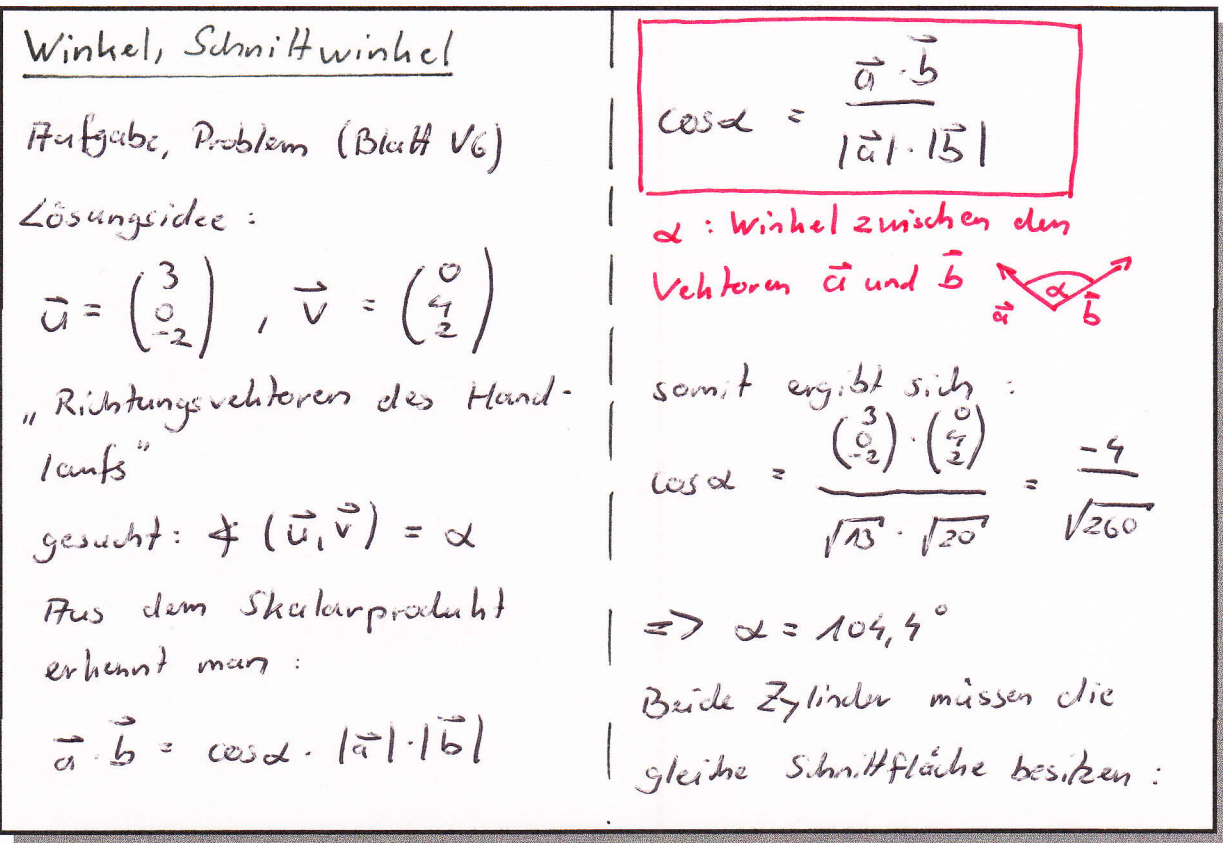 Winkel, Schnittwinkel
Aufgabe, Problem (Blatt V6)
Lösungsidee :
u⃗ = (3 0 -2) , v⃗ = (0 4 2)
„Richtungsvektoren des Hand-
laufs“
gesucht: ∢ (u⃗, v⃗) = α
Aus dem Skalarprodukt
erkennt man :
a⃗ · b⃗ = cosα · |a⃗| · |b⃗|
cosα = a⃗ · b⃗ / |a⃗| · |b⃗|
α : Winkel zwischen den
Vektoren a⃗ und b⃗
a⃗ α b⃗
somit ergibt sich :
cos α = (3 0 -2) · (0 4 2) / √13 · √20 = -4 / √260
=> α = 104,4°
Beide Zylinder müssen die
gleiche Schnittfläche besitzen :